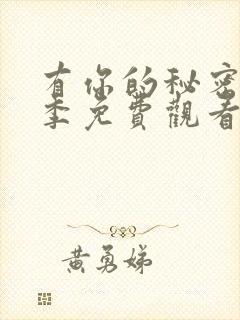 有你的秘密
季免費觀看
黃勇娣